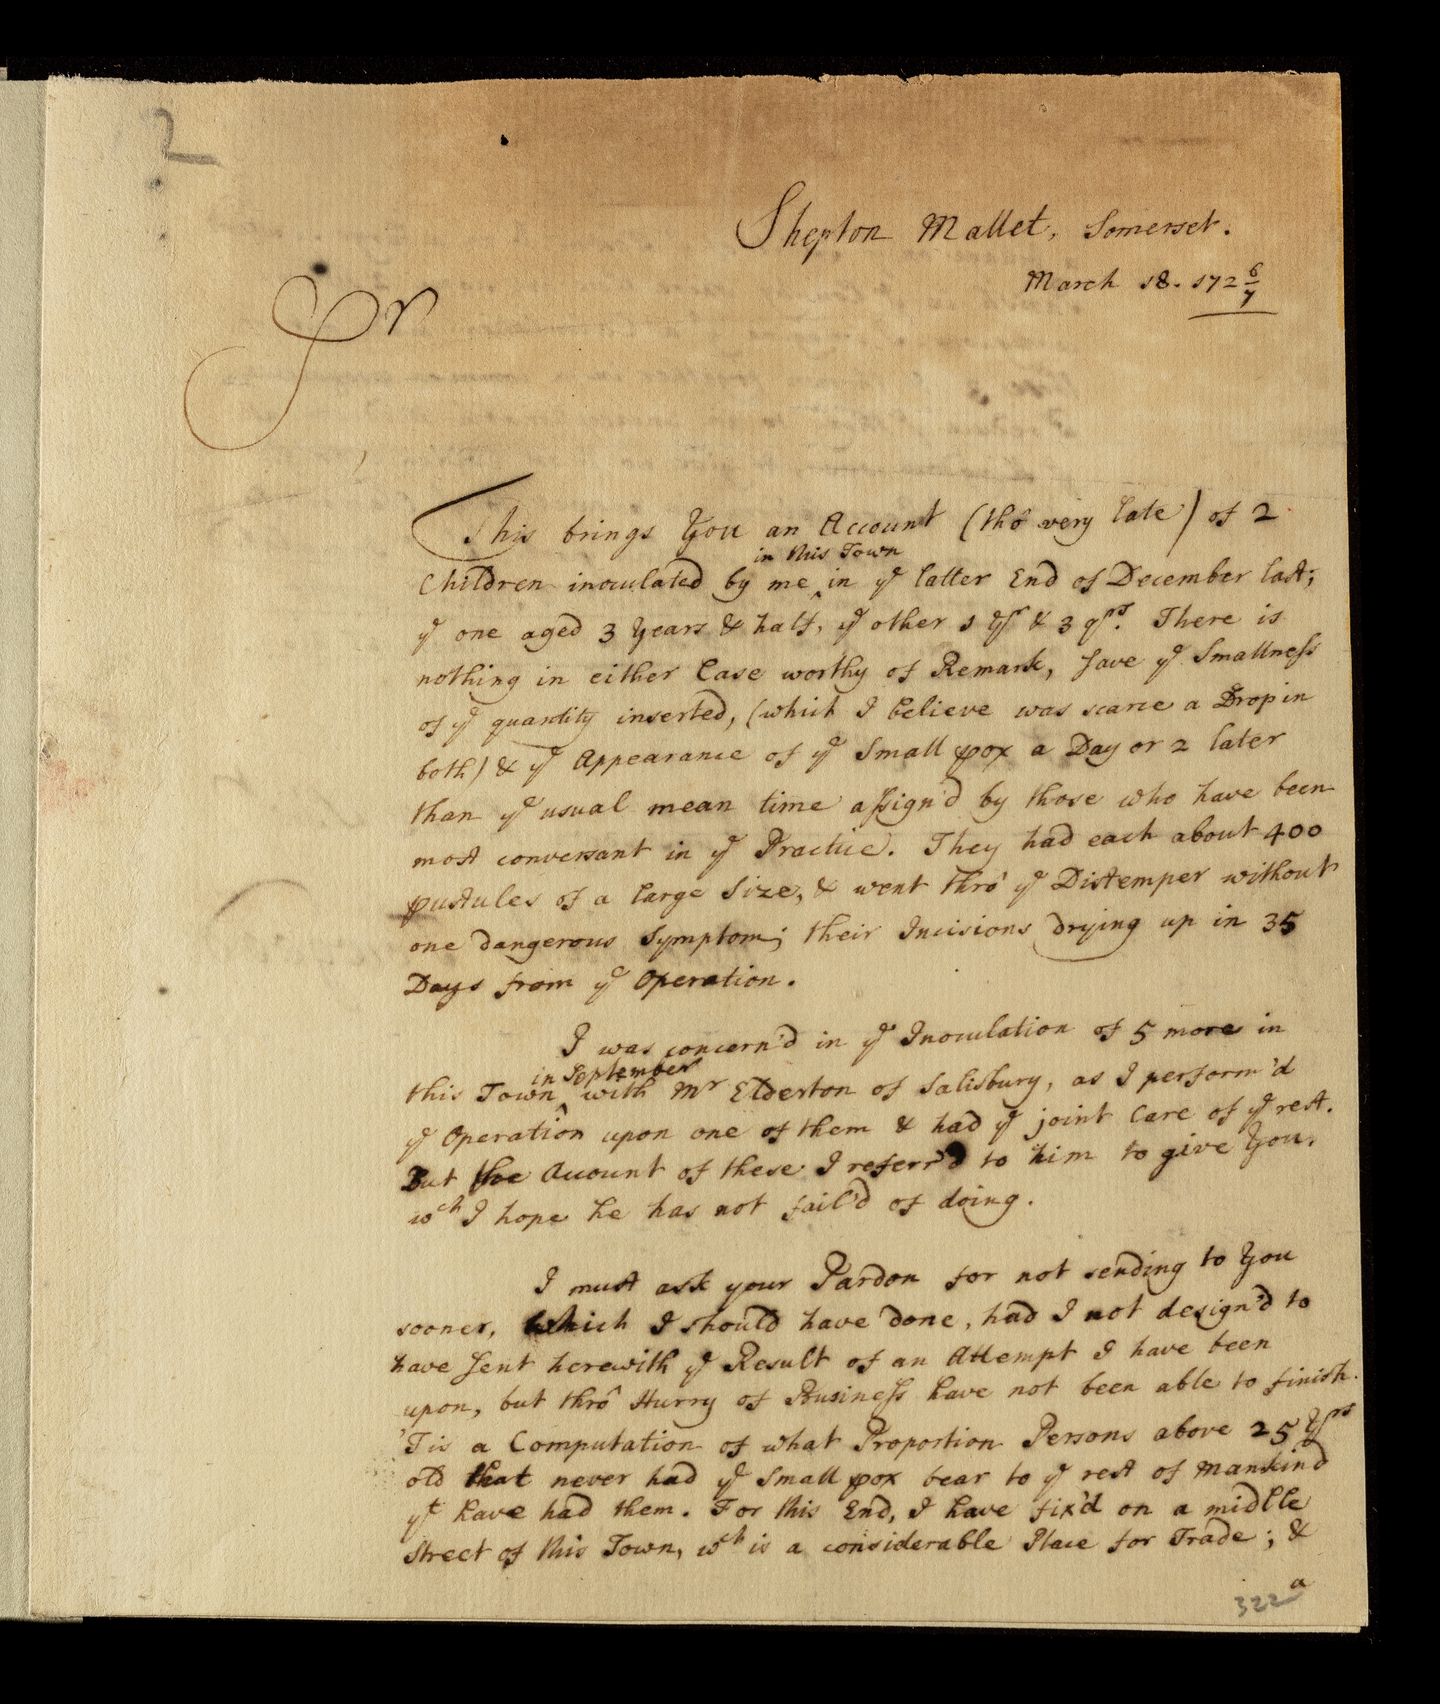 2
Shepton Mallet, Somerset.
March 18. 172 6/7
Sr
This brings You an Account (tho' very late) of 2
in this Town
Children inoculated by me ^ in ye latter End of December last;
ye one aged 3 Years & half, ye other 1 Yr & 3 qrs. There is
nothing in either Case worthy of Remark, save ye Smallness
of ye quantity inserted, (which I believe was scarce a Drop in
both) & ye Appearance of ye Small pox a Day or 2 later
than ye usual mean time assign'd by those who have been
most conversant in ye Practice. They had each about 400
pustules of a large Size, & went thro' ye Distemper without
one dangerous Symptom; their Incisions drying up in 35
Days from ye Operation.
I was concern'd in ye Inoculation of 5 more in
in September
this Town ^ with Mr Elderton of Salisbury, as I perform'd
ye Operation upon one of them & had ye joint Care of ye rest.
But the Account of these I referr'd to him to give You,
wch I hope he has not fail'd of doing.
I must ask your Pardon for not sending to You
sooner, which I should have done, had I not design'd to
have sent herewith ye Result of an Attempt I have been
upon, but thro' Hurry of Business have not been able to finish.
'Tis a Computation of what Proportion Persons above 25 Yrs
old that never had ye Small pox bear to ye rest of Mankind
yt have had them. For this End, I have fix'd on a middle
Street of this Town, wch is a considerable Place for Trade; &
322a